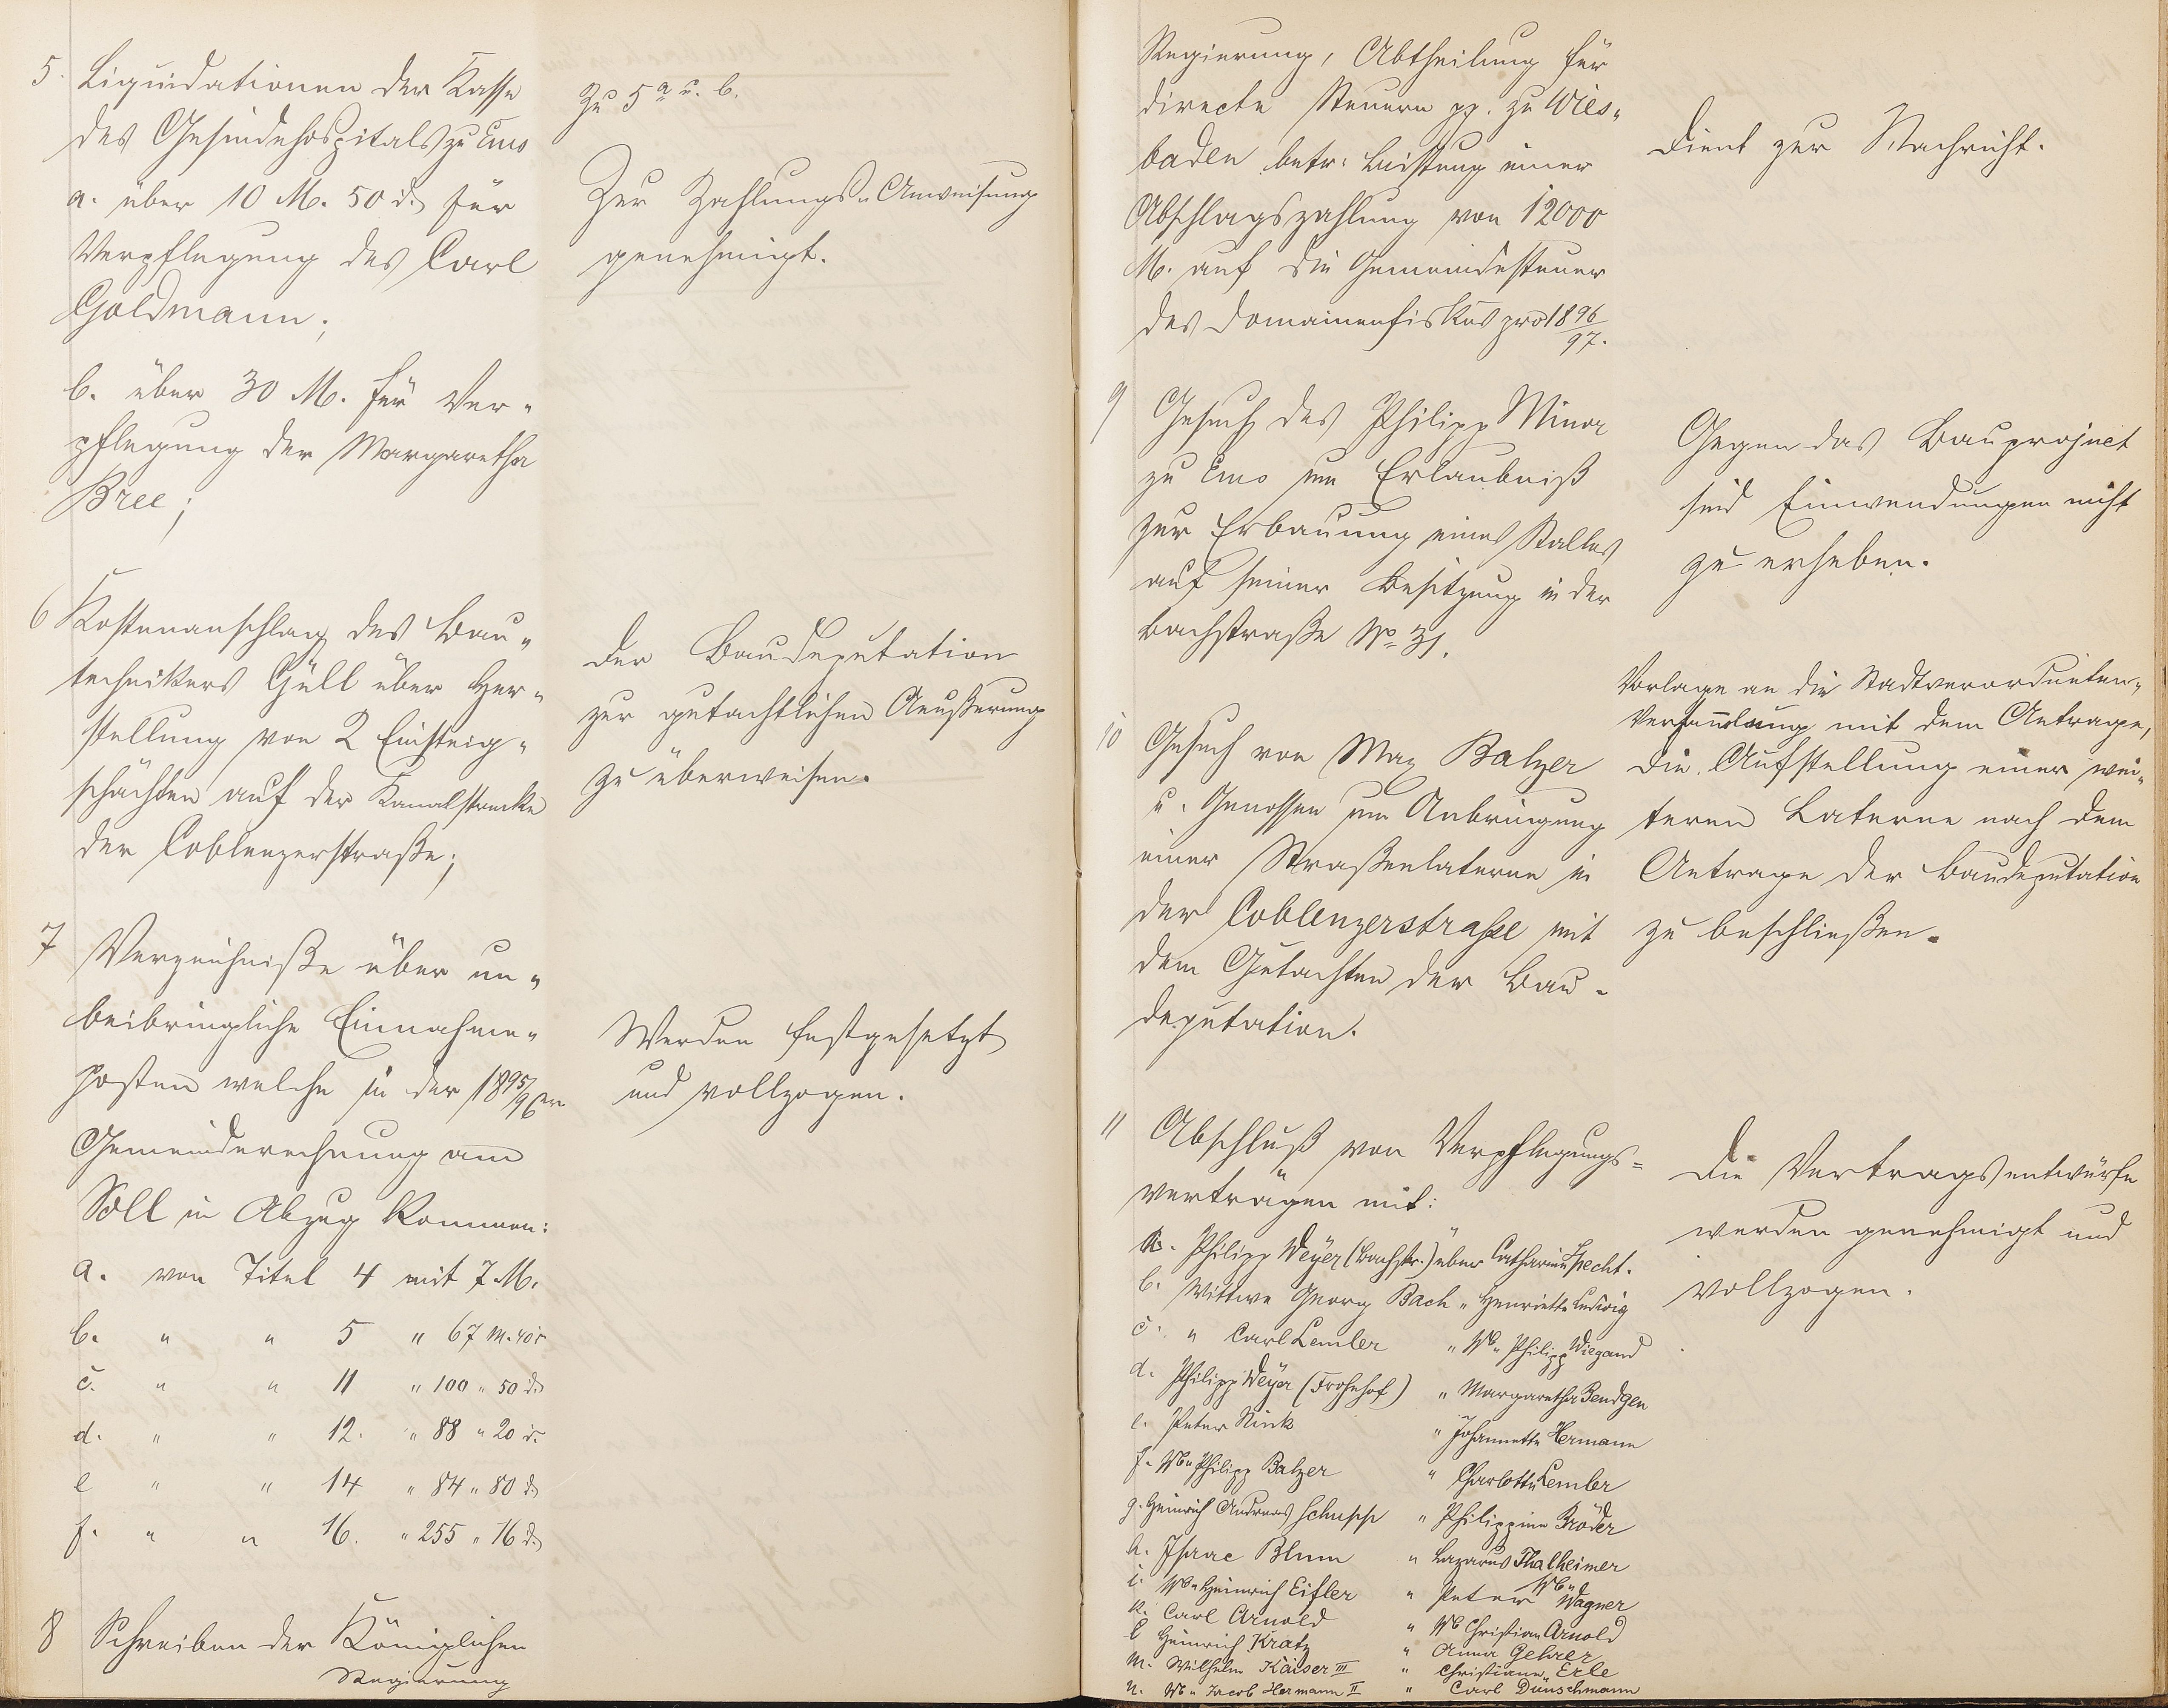 5. Liquidationen der Kasse
des Gesindehospitals zu Ems
a. über 10 M. 50 d. für
Verpflegung des Carl
Goldmann;
b. über 30 M. für Ver-
pflegung der Margaretha
Bree;
Zu 5 a u. b.
Zur Zahlungs-Anweisung
genehmigt.
6 Kostenanschlag des Bau-
technikers Güll über Her-
stellung von 2 Einsteig-
schächten auf der Kanalstrecke
der Coblenzerstraße;
Der Baudeputation
zur gutachtlichen Aeußerung
zu überweisen.
7 Verzeichniße über un-
beibringliche Einnahme-
posten welche in der 1895/96er
Gemeinderechnung am
Soll in Abzug kommen:
a. von Titel 4 mit 7 M.
b. " " 5 " 67 M. 40 d.
c. " " 11 " 100 " 50 d.
d. " " 12. " 88 " 20 d.
e " " 14 " 84 " 80 d.
f. " " 16. " 255 " 16 d.
Werden festgesetzt
und vollzogen.
8 Schreiben der Königlichen
Regierung
Regierung, Abtheilung für
directe Steuern pp. zu Wies-
baden betr: Leistung einer
Abschlagszahlung von 12000
M. auf die Gemeindesteuer
des Domainenfiskus pro 1896/97.
Dient zur Nachricht.
9 Gesuch des Philipp Minor
zu Ems um Erlaubniß
zur Erbauung eines Stalles
auf seiner Besitzung in der
Bachstraße No 31.
Gegen das Bauproject
sind Einwendungen nicht
zu erheben.
10 Gesuch von Max Balzer
u. Genossen um Anbringung
einer Straßenlaterne in
der Coblenzerstraße mit
dem Gutachten der Bau-
deputation.
Vorlage an die Stadtverordneten-
Versam̅lung mit dem Antrage,
die Aufstellung einer wei-
teren Laterne nach dem
Antrage der Baudeputation
zu beschließen.
11 Abschluß von Verpflegungs-
verträgen mit:
a. Philipp Weyer (Bachstr.) über Catharine Specht.
b. Wittwe Georg Bach " Henriette Ludwig
c. " Carl Lemler " Ww Philipp Wiegand
d. Philipp Weyer (Frohnhof) " Margaretha Bendgen
e. Peter Rink " Johannette Hermann
f. Ww Philipp Balzer " Charlotte Lemler
g. Heinrich Andreas Schupp " Philippine Bröder
h. Isaac Blum " Lazarus Thalheimer
i. Ww Heinrich Eisler " Peter Wagner Ww
k. Carl Arnold " Ww Christian Arnold
l Heinrich Kratz " Anna Gehrer
m. Wilhelm Kaiser III " Christiane Erle
n. Ww Jacob Hermann II " Carl Dünschmann
Die Vertragsentwürfe
werden genehmigt und
vollzogen.